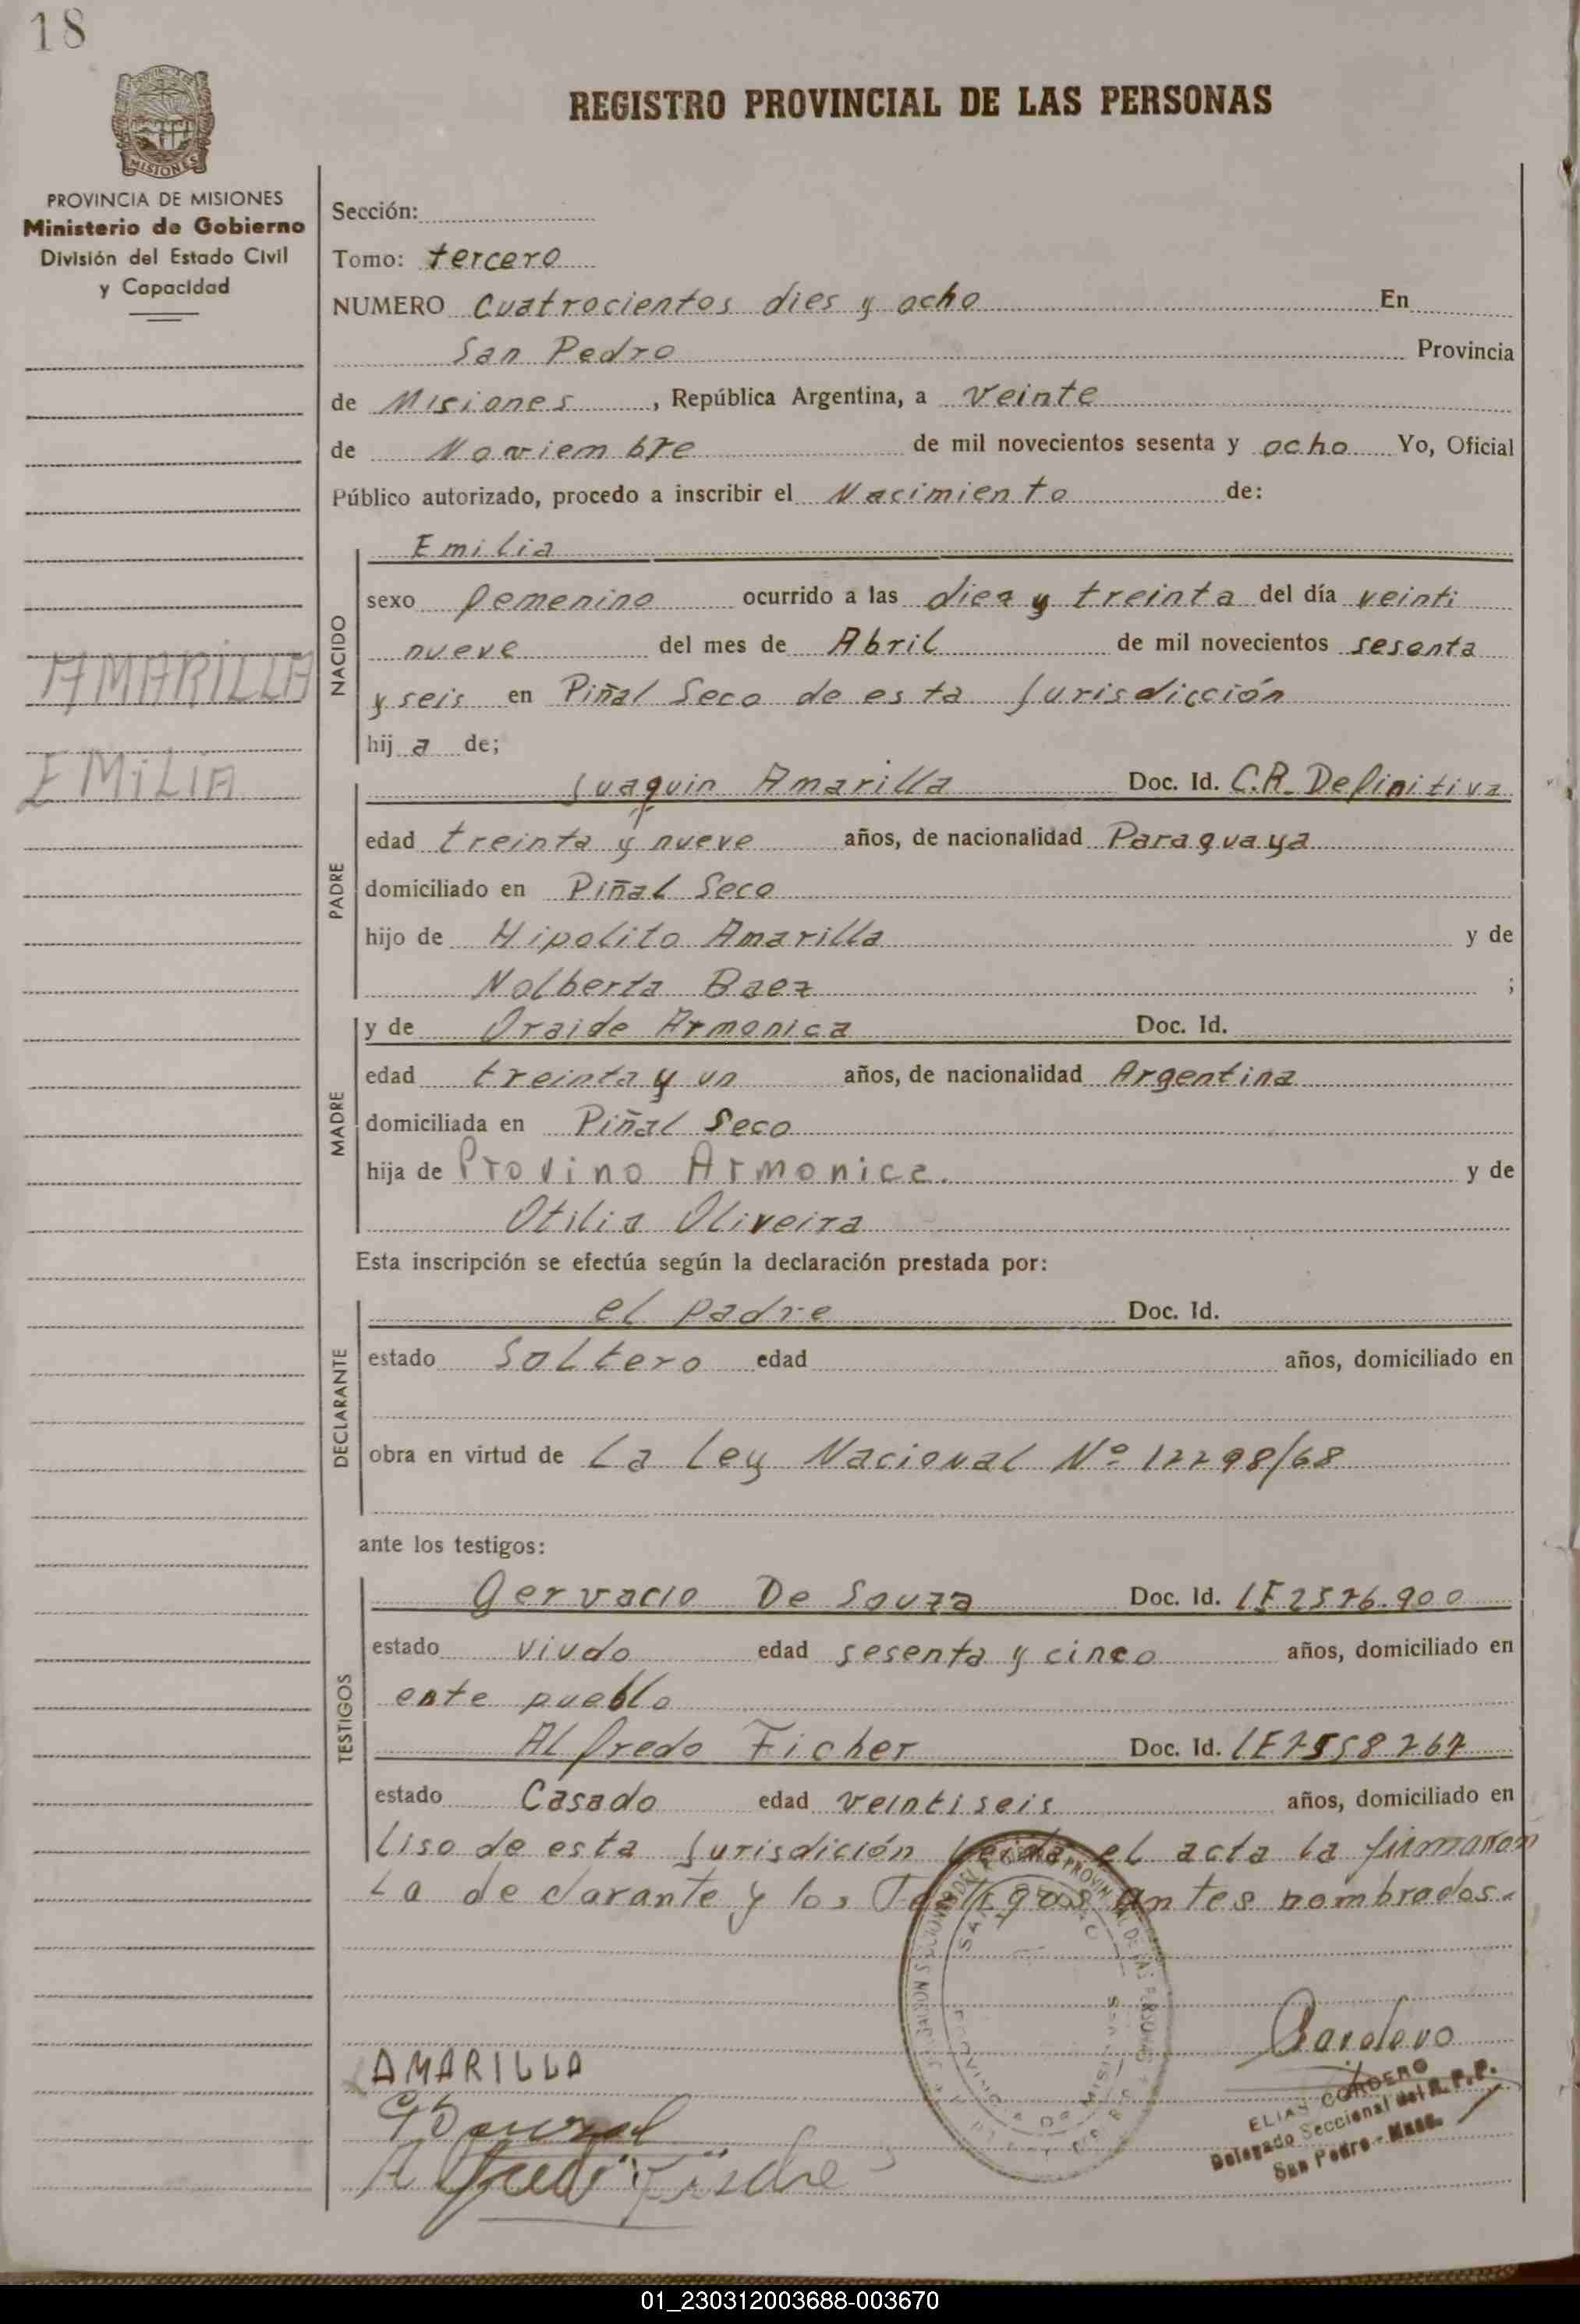 18
MISIONES
REGISTRO PROVINCIAL DE LAS PERSONAS
PROVINCIA DE MISIONES
Ministerio de Gobierno
División del Estado Civil
y Capacidad
AMARILLA
EMiLiA
Sección:
Tomo: tercero
NUMERO Cuatrocientos dies y ocho En
San Pedro Provincia
de Misiones, República Argentina, a veinte
de Noviembre de mil novecientos sesenta y ocho Yo, Oficial
Público autorizado, procedo a inscribir el Nacimiento de:
NACIDO
Emilia
sexo femenino ocurrido a las diez y treinta del día veinti
nueve del mes de Abril de mil novecientos sesenta
y seis en Piñal Seco de esta Jurisdicción
hij a de;
PADRE
Juaquin Amarilla Doc. Id. C.R. Definitiva
edad treinta y nueve años, de nacionalidad Paraguaya
domiciliado en Piñal Seco
hijo de Hipolito Amarilla y de
Nolberta Baez ;
MADRE
y de Oraide Armonica Doc. Id.
edad treinta y un años, de nacionalidad Argentina
domiciliada en Piñal Seco
hija de Provino Armonice. y de
Otilia Oliveira
Esta inscripción se efectúa según la declaración prestada por:
DECLARANTE
el padre Doc. Id.
estado Soltero edad años, domiciliado en
obra en virtud de La Ley Nacional Nº /68
ante los testigos:
TESTIGOS
Gervacio De Souza Doc. Id. LE 2576.900
estado viudo edad sesenta y cinco años, domiciliado en
este pueblo
Alfredo Ficher Doc. Id. LE
estado Casado edad veintiseis años, domiciliado en
Liso de esta Jurisdición Leida el acta la firmaron
La declarante y los Testigos antes nombrados.
AMARILLA
Alfredo
ELIAS CORDERO
Delegado Seccional del R.P.P.
San Pedro - Mnes.
01_230312003688-003670